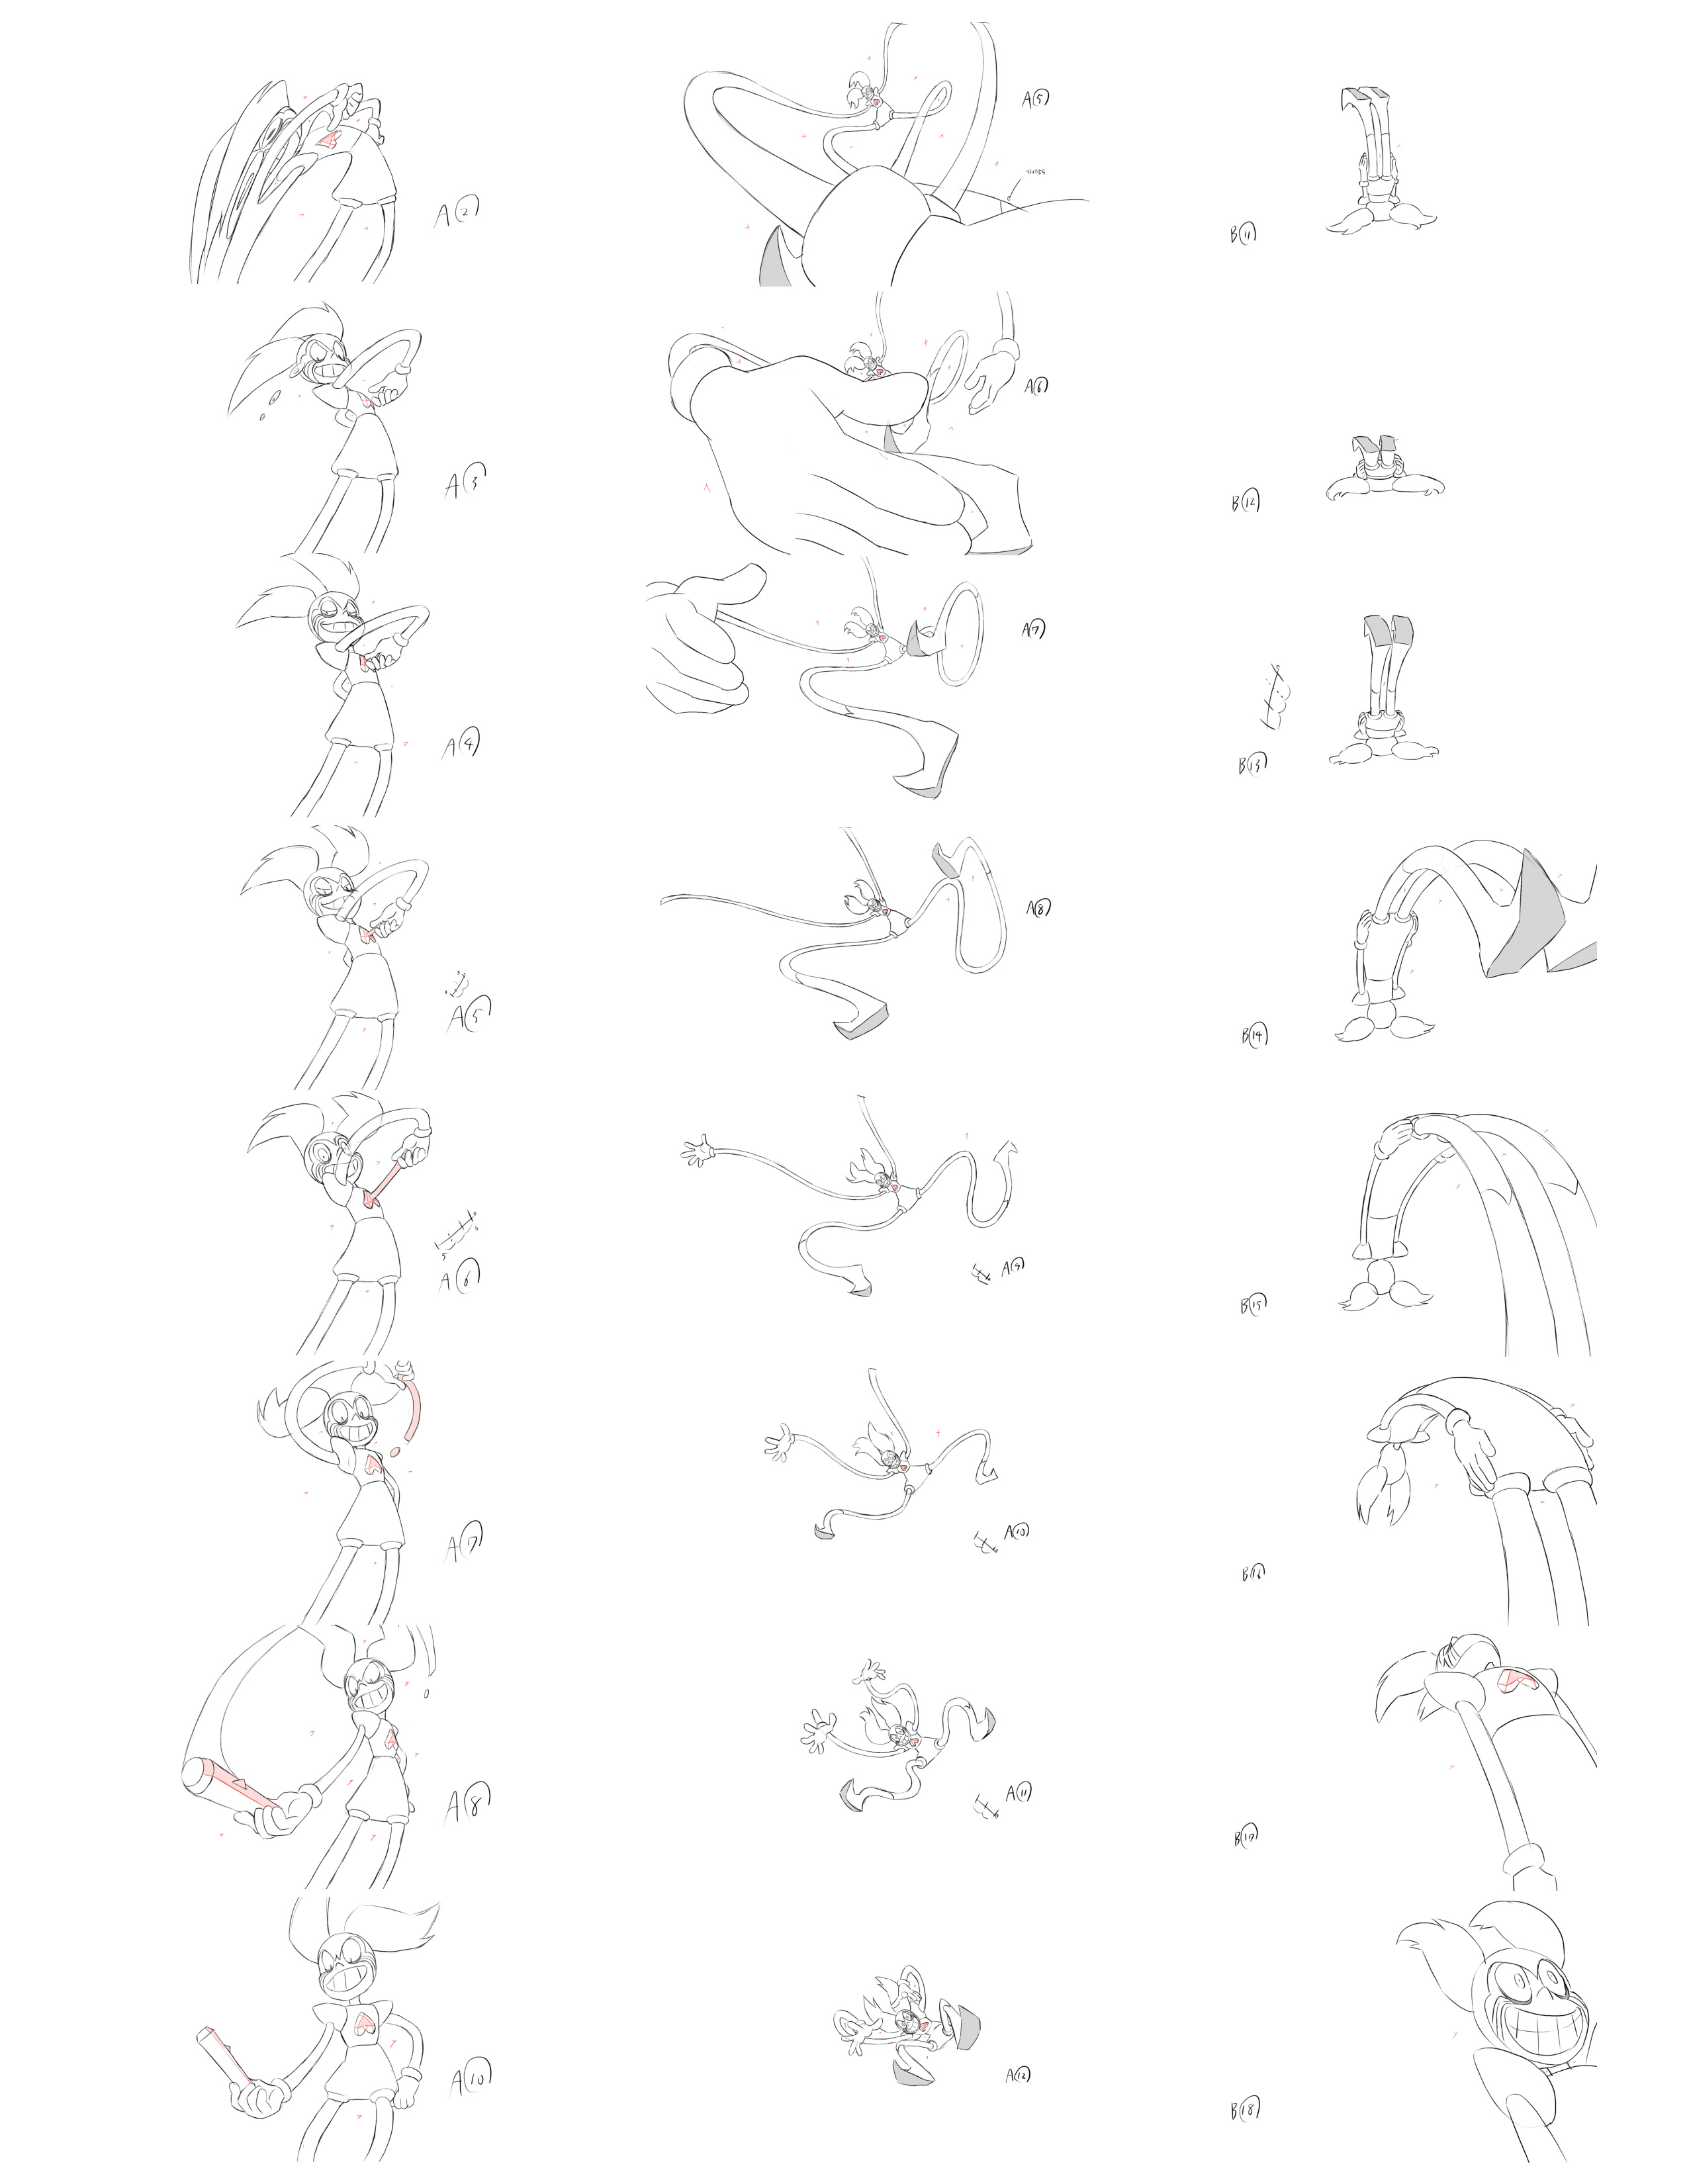 A②
A③
A④
A⑤
A⑥
A⑦
A⑧
A⑩
A⑤
A⑥
A⑦
A⑧
A⑨
A⑩
A⑪
A⑫
B⑪
B⑫
B⑬
B⑭
B⑮
B⑯
B⑰
B⑱